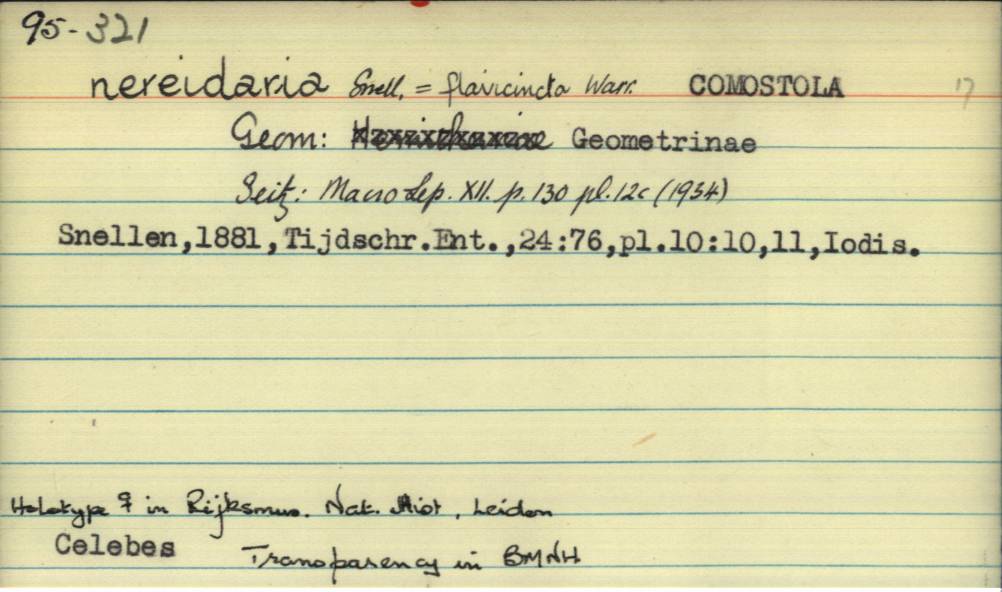 95-321
nereidaria Snell. = flavicincta Warr. COMOSTOLA 17
Geom: Geometrinae
Seitz: Macro Lep. XII. p. 130 pl. 12c (1934)
Snellen,1881,Tijdschr.Ent.,24:76,pl.10:10,11,Iodis.
Holotype ♀ in Rijksmus. Nat. Hist, Leiden
Celebes Transparency in BMNH